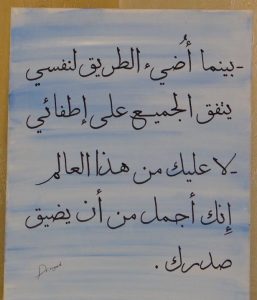 -بينما أُضيء الطريق لنفسي
يتفق الجميع على إطفائي
-لا عليك من هذا العالم
إِنك أجمل من أن يضيق
صدرك .